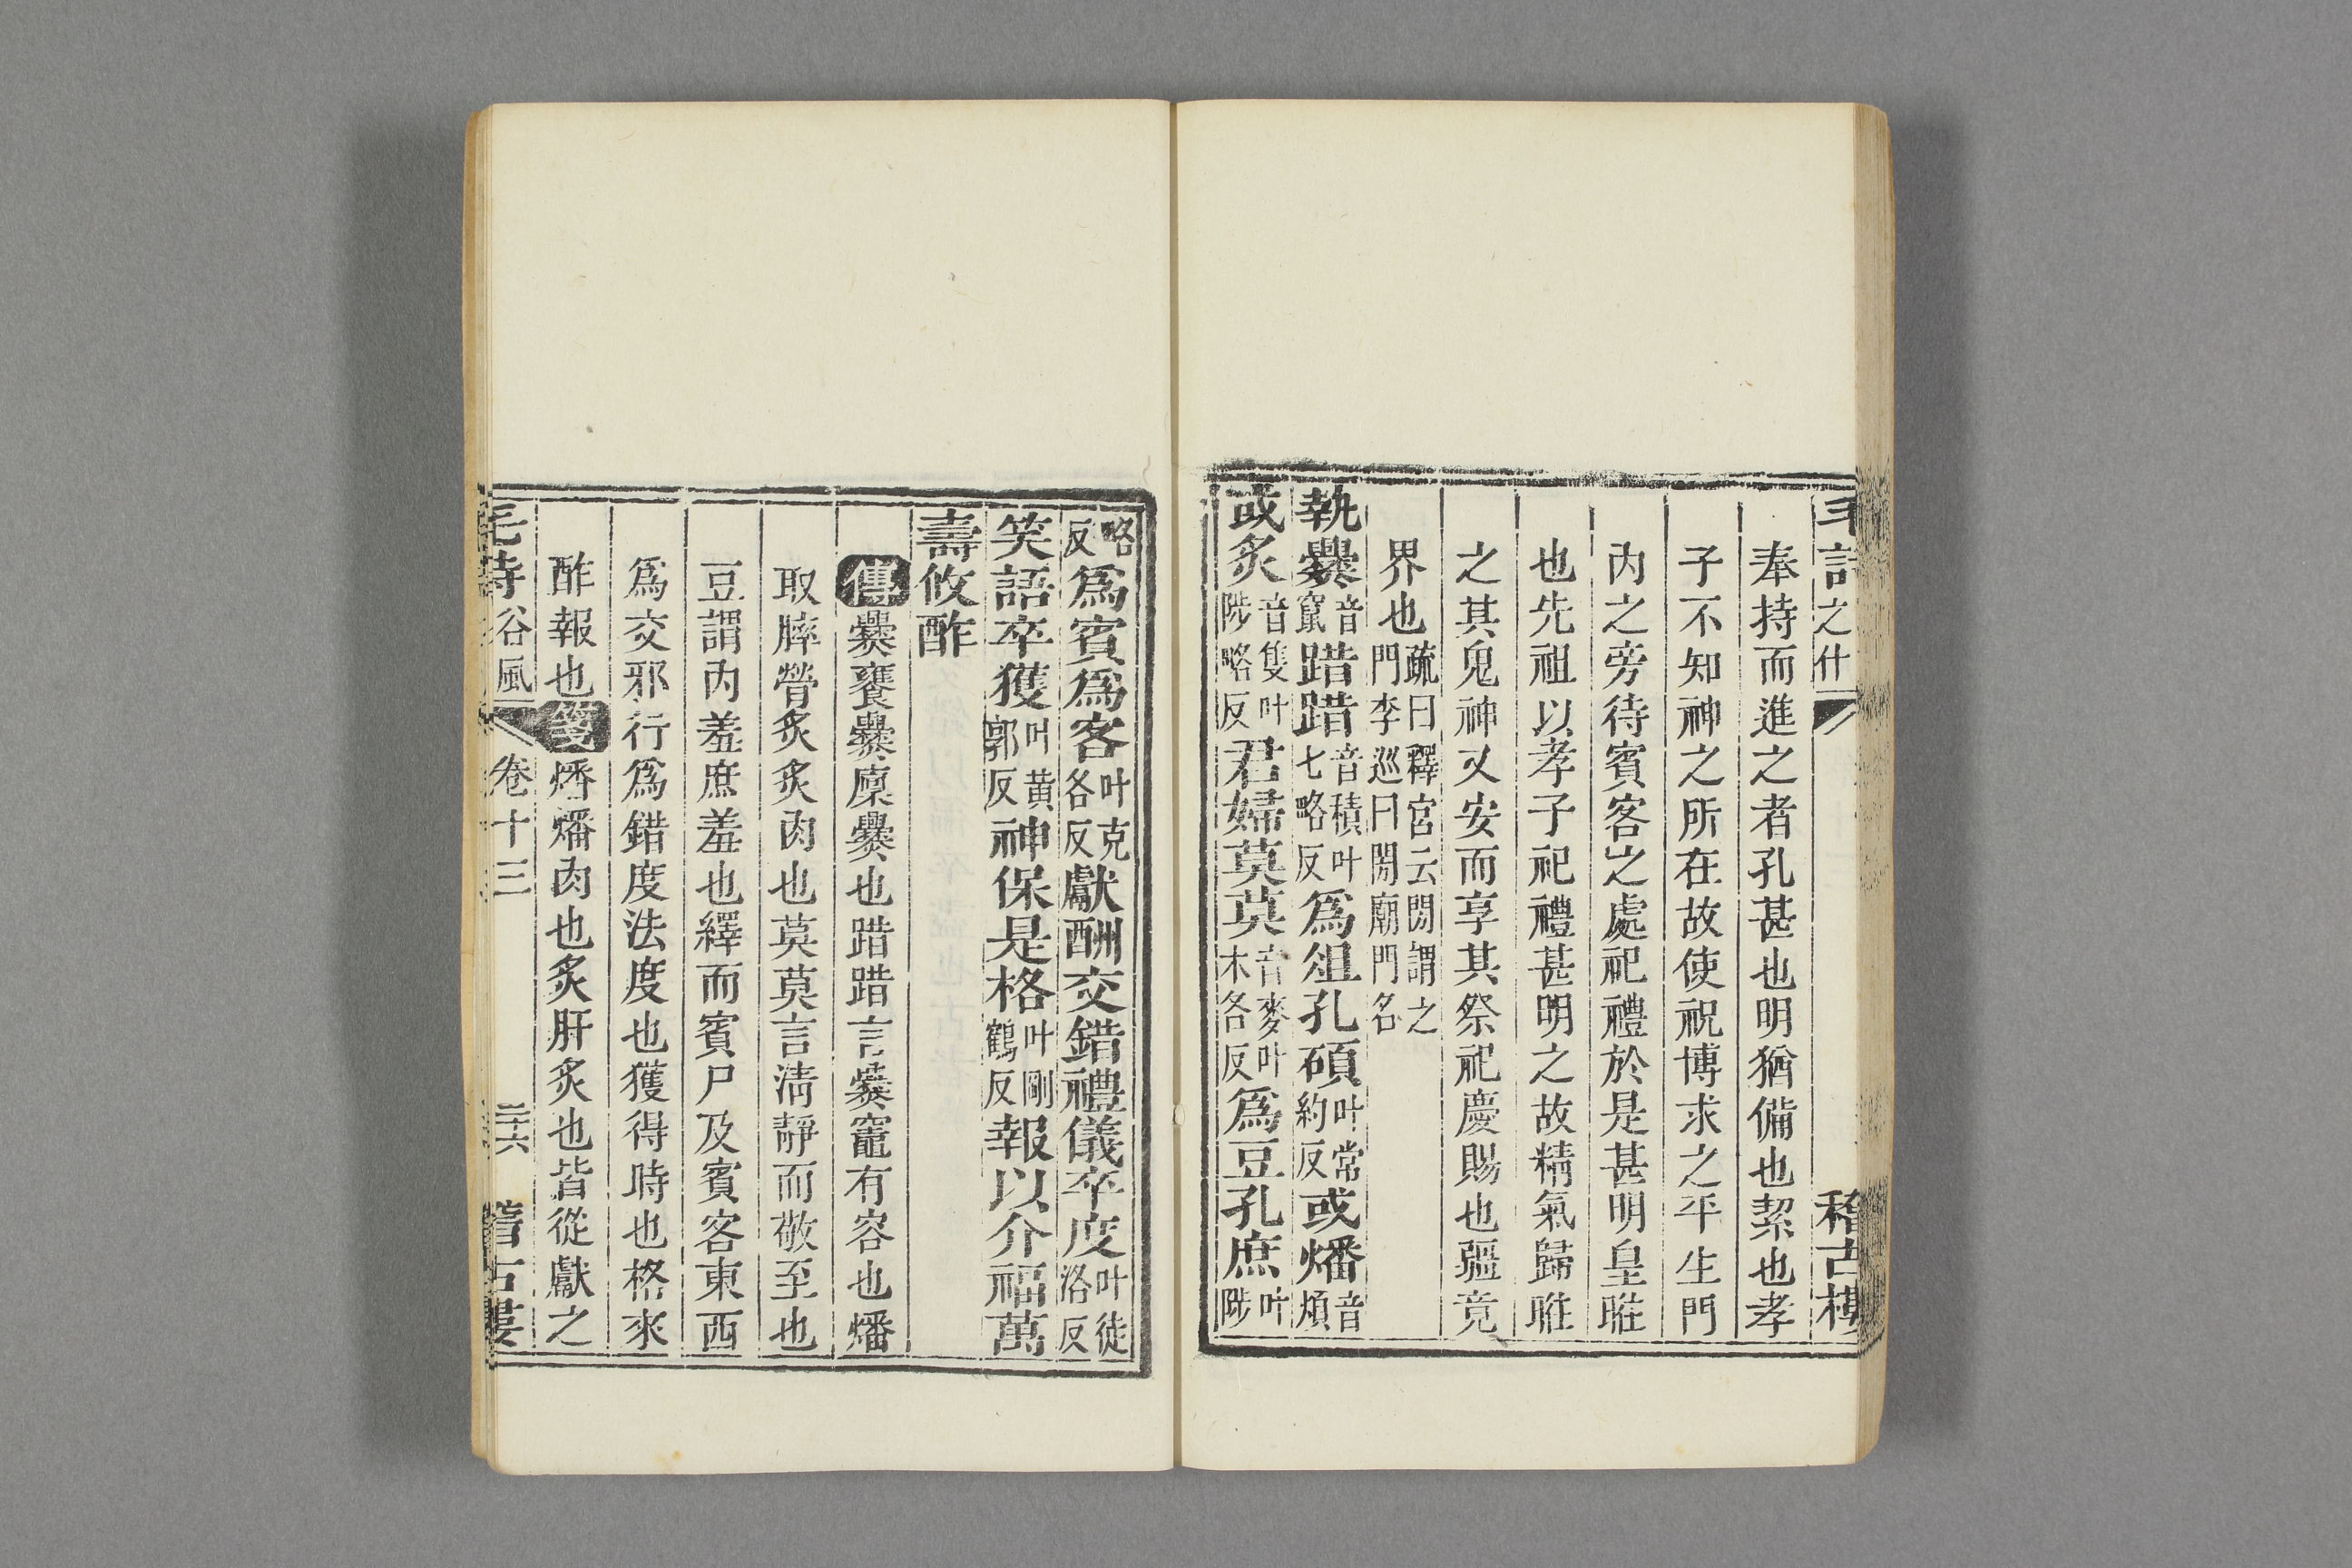 毛詩之什 稽古樓
奉持而進之者孔甚也明猶備也絜也孝
子不知神之所在故使祝博求之平生門
內之旁待賓客之處祀禮於是甚明皇暀
也先祖以孝子祀禮甚明之故精氣歸暀
之其鬼神又安而享其祭祀慶賜也疆竟
界也疏曰釋宮云閍謂之門李巡曰閍廟門名
執爨音竄踖踖音積叶七略反爲俎孔碩叶常約反或燔音煩
或炙音隻叶陟略反君婦莫莫音麥叶木各反爲豆孔庶叶陟
略反爲賓爲客叶克各反獻酬交錯禮儀卒度叶徒洛反
笑語卒獲叶黃郭反神保是格叶剛鶴反報以介福萬
壽攸酢
傳爨饔爨廩爨也踖踖言爨竈有容也燔
取膟膋炙炙肉也莫莫言清靜而敬至也
豆謂內羞庶羞也繹而賓尸及賓客東西
爲交邪行爲錯度法度也獲得時也格來
酢報也箋燔燔肉也炙肝炙也皆從獻之
毛詩谷風 卷十三 稽古樓